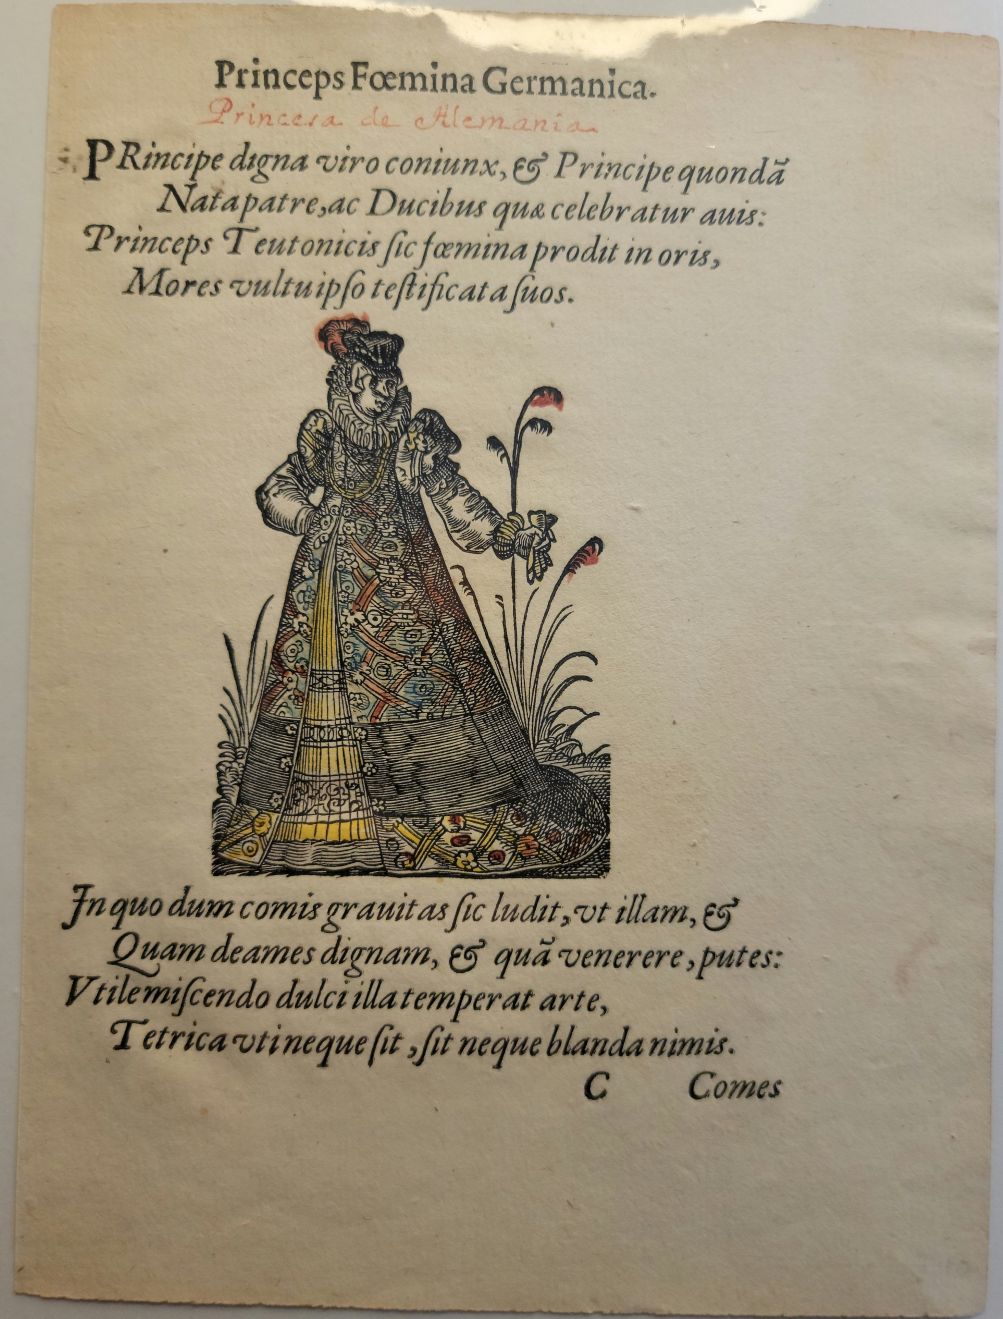 Princeps Fœmina Germanica.
Princesa de Alemania.
PRincipe digna viro coniunx, & Principe quondã
Nata patre, ac Ducibus quæ celebratur auis:
Princeps Teutonicis ſic fœmina prodit in oris,
Mores vultu ipſo teſtificata ſuos.
In quo dum comis grauitas ſic ludit, vt illam, &
Quam deames dignam, & quã venerere, putes:
Vtile miſcendo dulci illa temperat arte,
Tetrica vti neque ſit, ſit neque blanda nimis.
C Comes